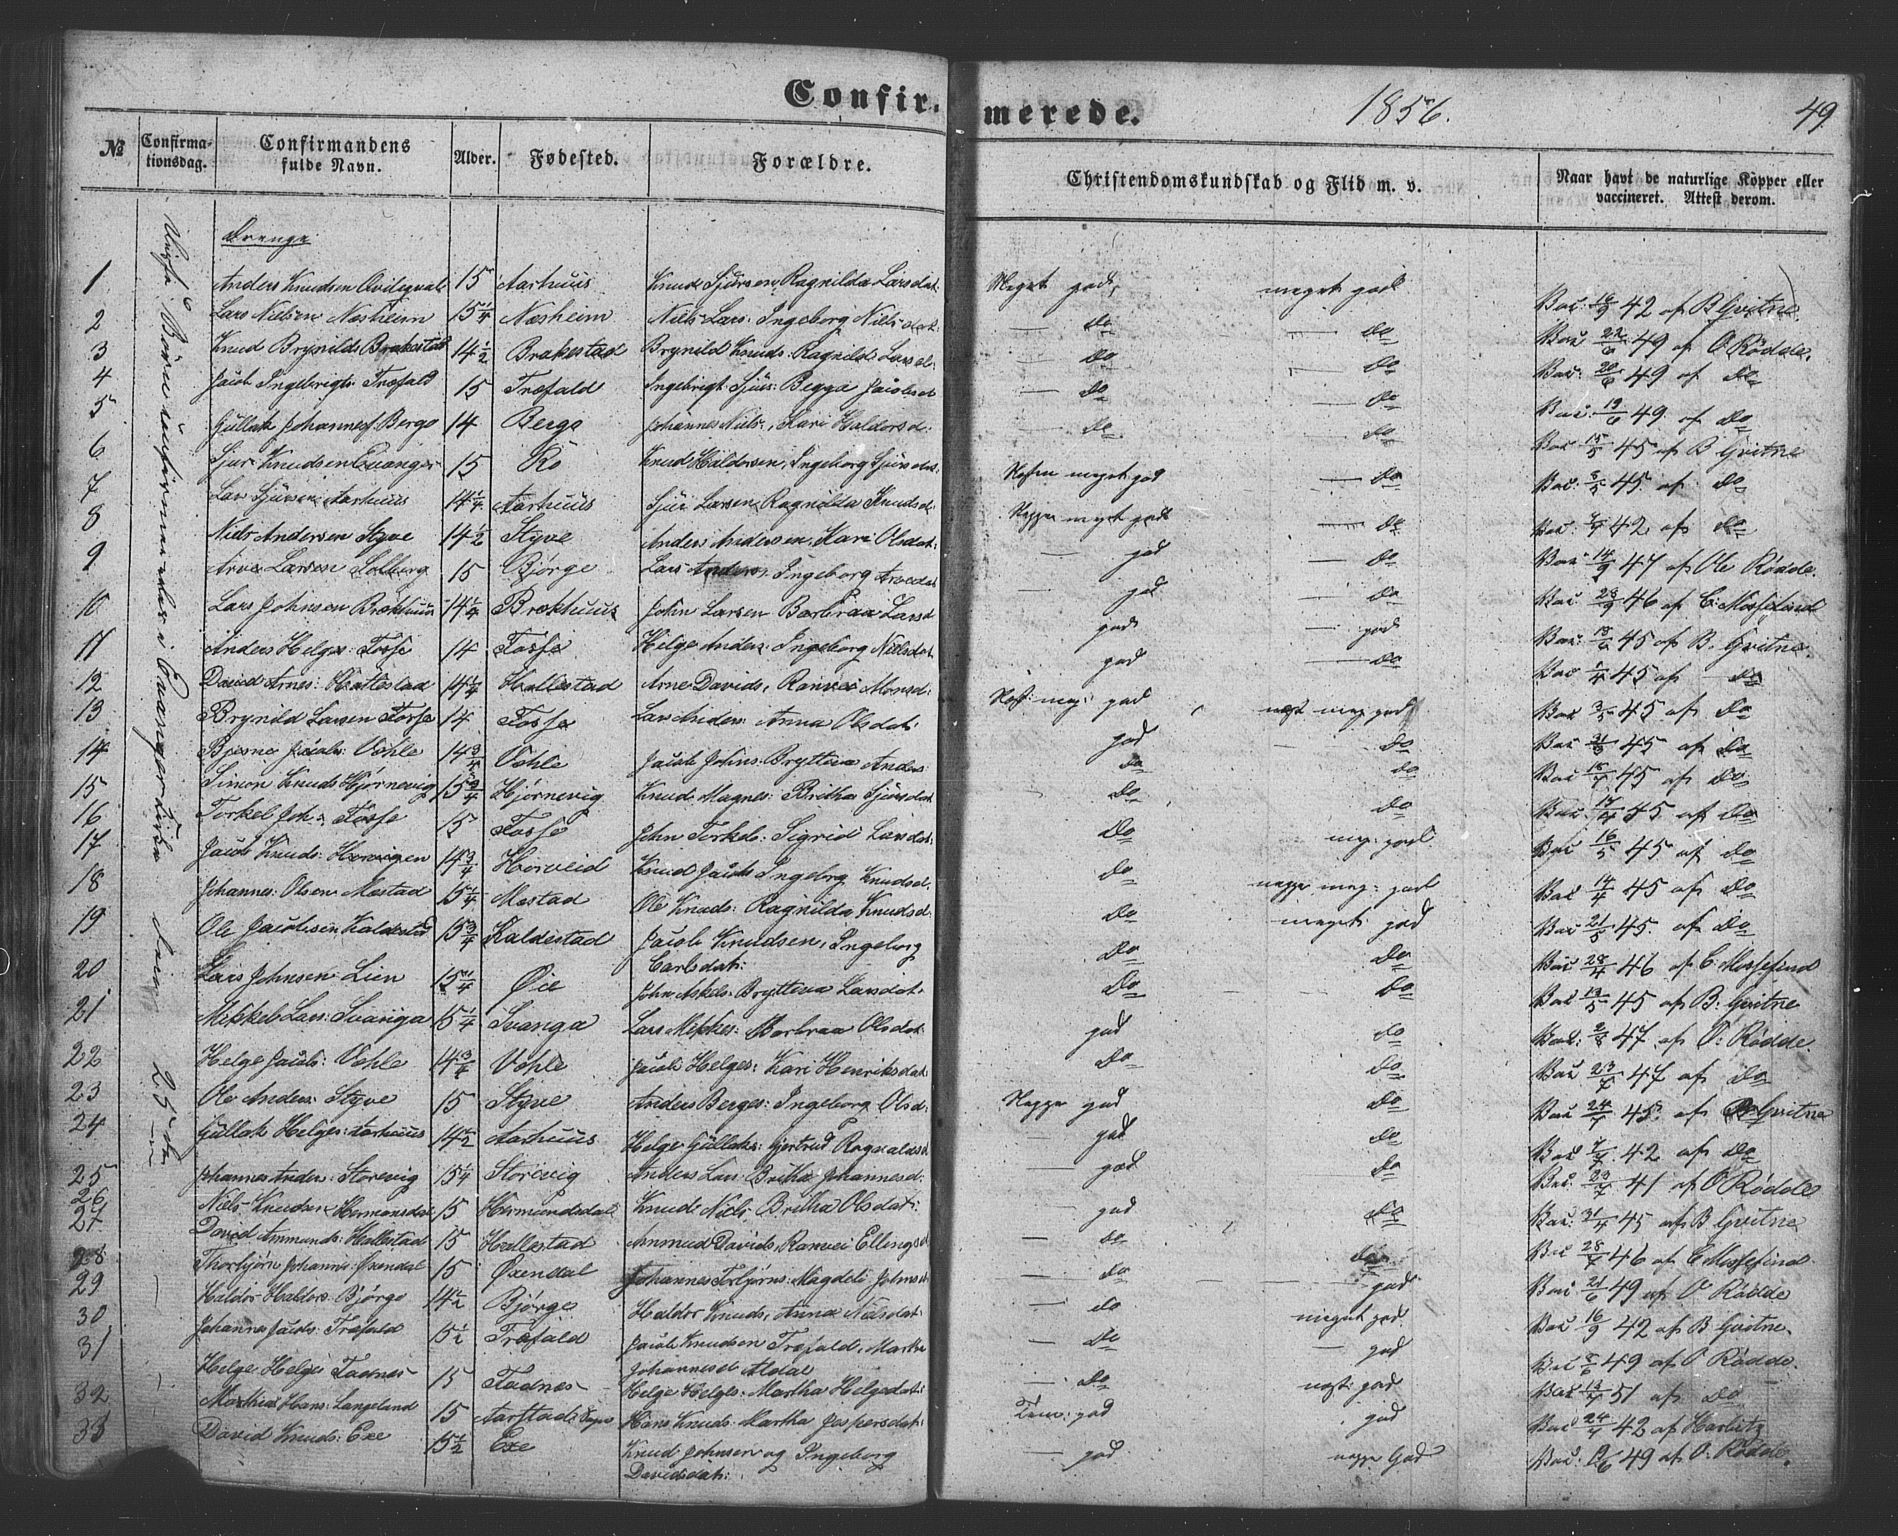 Confir.
merede.
1856.
49.
№
Confirma-
tionsdag.
Confirmandens
fulde Navn.
Alder.
Fødested.
Forældre.
Christendomskundskab og Flid m. v.
Naar havt de naturlige Kopper eller
vaccineret. Attest derom.
Drenge
1 Anders Knudsen 15 Aarhuus Knud Sjursen, Ragnilda Larsdat: Meget god, meget god Vac: 42 af B Gvitne
2 Lars Nielsen Næsheim 15 1/4 Næsheim Niels Lars: Ingeborg Niels dat: — do — do Vac 22/6 49 af O Rødde.
3 Knud Brynilds Brakestad 14 1/2 Brakestad Brynild Knuds: Ragnild Lars d: — do — do Vac: 20/6 49 af do
4 Jacob Ingebrigts Træfald 15 Træfald Ingebrigt Sjurs: Begga Jacobsd — do — do Vac: 19/6 49. af do
5 Gullak Johannes Berge 14 Berge Johannes Niels:, Kari Haldorsd: — do — do Vac: 15/5 45 af B Gvitne
6 Sjur Knudsen Evanger 15 Knud Haldorsen, Ingeborg Sjursdat: Næsten meget god — do Vac: 45. af do
7 Lars Sjursen Aarhuus 14 1/4 Aarhuus Sjur Larsen Ragnilda Knudsd: Neppe meget god — do Vac: 42 af do
8 Niels Andersen Styve 14 1/2 Styve Anders Andersen, Kari Olsdat: — god — do Vac: 47 af Ole Rødde.
9 Larsen Solberg 15 Bjørge Lars Anders, Ingeborg — god — do Vac 46 af C: Mossefind
10 Lars Johnsen Brækhuus 14 1/4 Brækhuus John Larsen Barbraa Larsd god — god Vac: 45 af B. Gvitne.
11 Anders Helges: Fosse 14 Fosse Helge Anders: Ingeborg Nielsdat: god — do Vac 1/4 45 af do
12 David Arnes: Hallestad 14 1/4 Hallestad Arne Davids, Ranvei Monsd: Næst: meg: god næst meg god Vac 3/5 45 af do
13 Brynild Larsen Fosse 14 Fosse Lars Anders: Anna Olsdat: god — do Vac 45 af do
14 Jacobs: Vohle 14 3/4 Vohle Jacob Johns: Brytteva Anders: do do Vac 45 af do
15 Simon Knuds Hjørnevig 15 3/4 Hjørnevig Knud Magnes: Britha Sjursdat: do do Vac: 17/4 45 af do
16 Torkel Joh: Fosse 15 Fosse John Torkels: Sigrid Larsdat: do meg: god Vac 16/5 45 af do
17 Jacob Knuds: 14 3/4 Horveid Knud Jacobs Ingeborg Knudsd: do neppe meg: god Vac 14/4 45 af do
18 Johannes: Olsen Mæstad 15 1/4 Mæstad Ole Knuds: Ragnilda Knudsd: do meget god Vac 21/5 45. af do
19 Ole Jacobsen Kaldestad 15 3/4 Kaldestad Jacob Knudsen, Ingeborg do do Vac 28/4 46 af C: Mossefind
Carlsdat:
20 Lars Johnsen Lien 15 1/4 John Askels: Brytteva Larsdat: do do Vac 45 af B: Gvitne
21 Mikkel Lars: Svanga 15 1/4 Svanga Lars Mikkes: Barbraa Olsdat: god do Vac: 47 af O: Rødde.
22 Helge Jacobs: Vohle 14 3/4 Vohle Jacob Helges: Kari Henriksdat: do do Vac 23/7 47 af do
23 Ole Anders: Styve 15 Styve Anders Berges: Ingeborg Olsd: Neppe god do Vac 24/7 45. af B Gvitne
24 Gullak Helges: Aarhuus 14 1/2 Aarhuus Helge Gullaks: Gjertrud Ragvaldsd — god do Vac 42 af do
25 Johannes Anders: Storevig 15 1/4 Storevig Anders Lars: Britha Johannesd: — god do Vac: 23/7 41 af O Rødde
26 Niels Knudsen Hermandsdal 15 Hermundsdal Knud Niels, Britha Olsdat: — god do Vac: 31/4 45 af B Gvitne
27 David Ammunds: Hallestad 15 Hallestad Davids, Ranvei Ellingsd — do do Vac 28/7 46 af C Mossefind.
28 Thorbjørn Johannes Øxendal 15 Øxendal Johannes Torbjørns: Magdeli Johnsd: — do — god Vac 21/6 49 af O Rødde
29 Haldor Haldors: Bjørge 14 1/2 Bjørge Haldor Knuds, Anna Nilsdat: — do meget god. Vac 16/9 42 af B Gvitne.
30 Johannes Jacobs: Træfald 15 1/2 Træfald Jacob Knudsen Træfald, Martha — do — god Vac 49 af O Rødde.
Johannesd Aldal
31 Helge Helges Fadnes 15 Fadnes Helge Helges: Martha Helgedat: — do næst: god Vac 51 af do
32 Mathias Hans: Langeland 15 Hans Knuds: Martha Jespersdat: god god Vac 24/4 42 af Harbitz
33 David Knuds: Exe 15 1/2 Exe Knud Johnsen og Ingeborg — god neppe God Vac: 49 af O: Rødde.
Davidsdat: